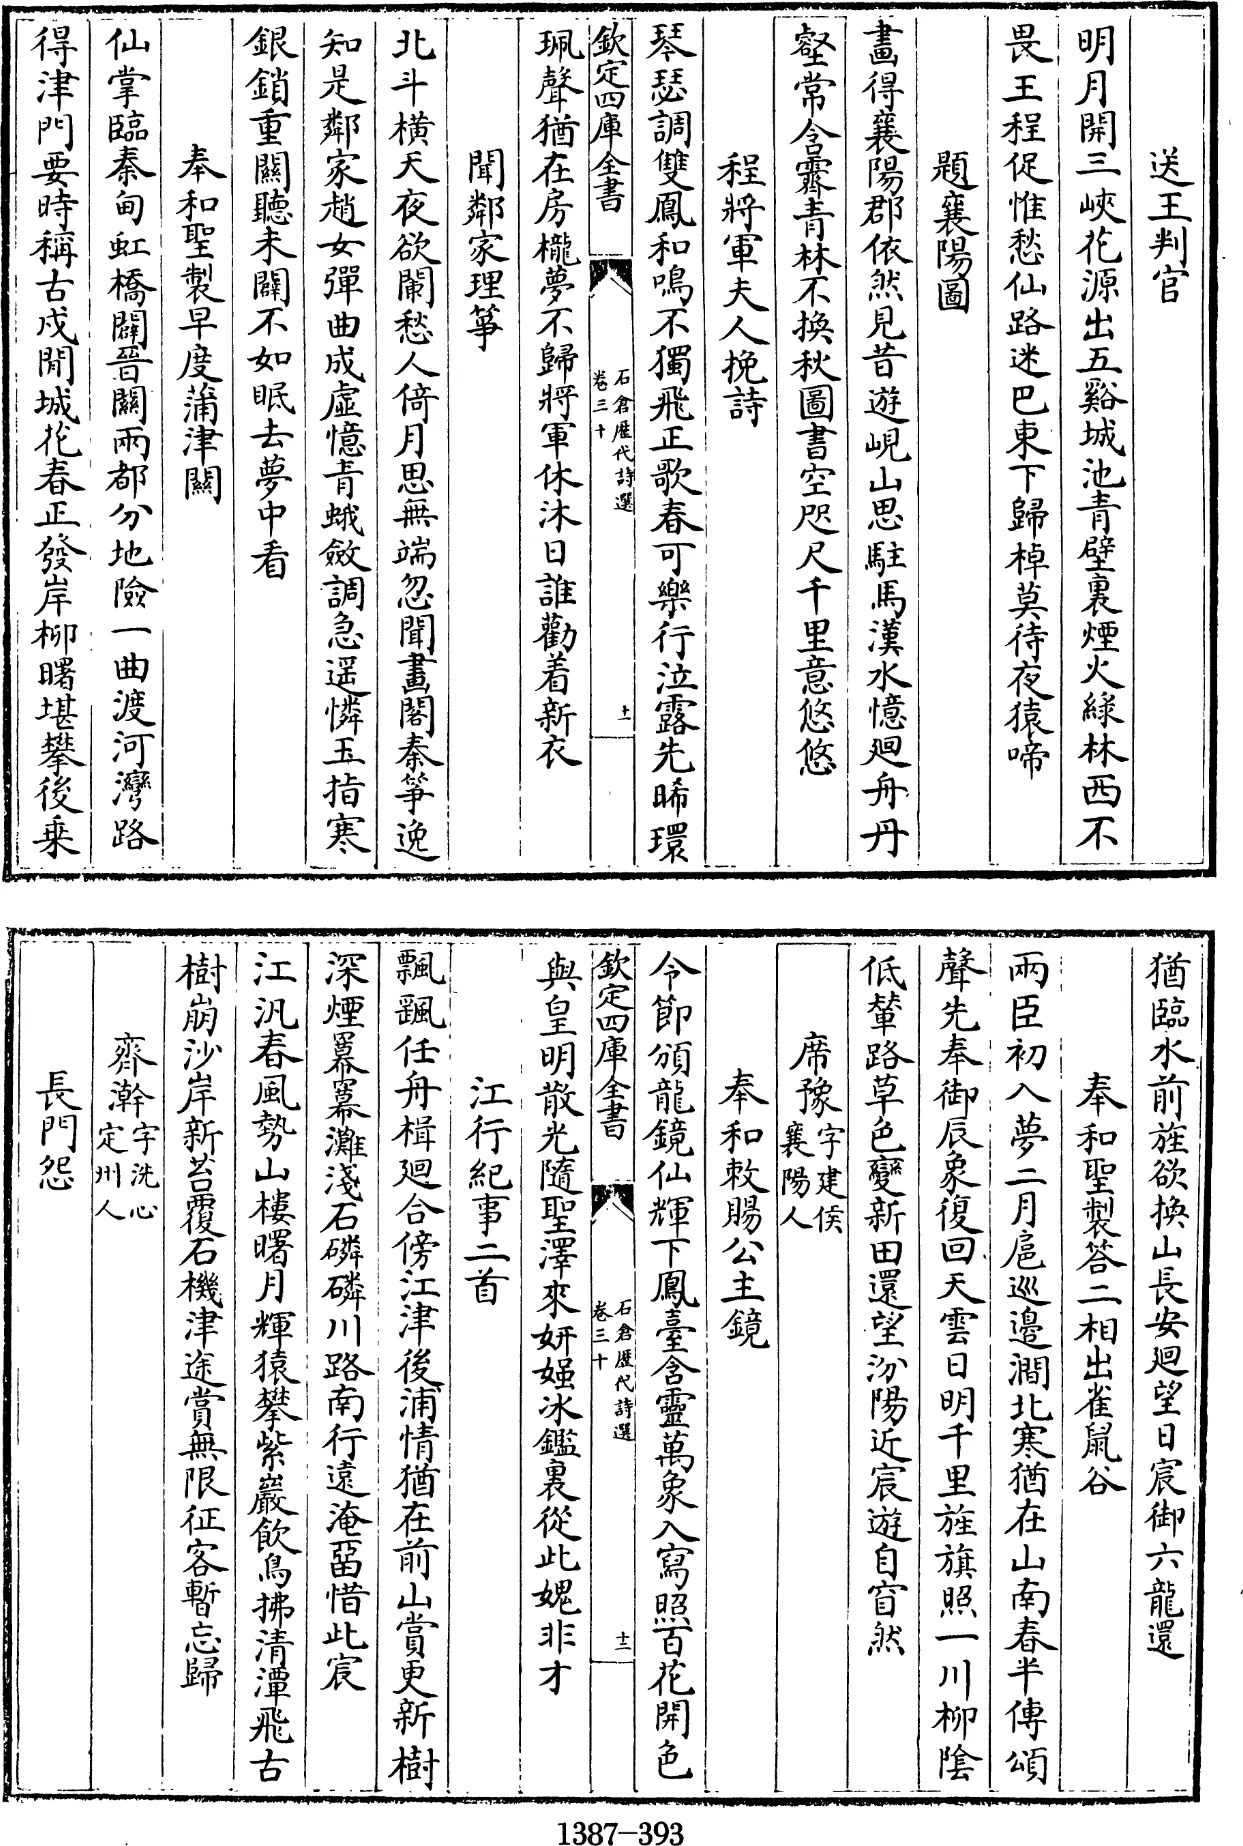 送王判官
明月開三峽花源出五谿城池青壁裏煙火綠林西不
畏王程促惟愁仙路迷巴東下歸棹莫待夜猿啼
題襄陽圖
畫得襄陽郡依然見昔遊峴山思駐馬漢水憶廻舟丹
壑常含霽青林不換秋圖書空咫尺千里意悠悠
程將軍夫人挽詩
琴瑟調雙鳳和鳴不獨飛正歌春可樂行泣露先晞環
欽定四庫全書
石倉歷代詩選
卷三十
十一
珮聲猶在房櫳夢不歸將軍休沐日誰勸着新衣
聞鄰家理箏
北斗橫天夜欲闌愁人倚月思無端忽聞畫閣秦箏逸
知是鄰家趙女彈曲成虛憶青蛾斂調急遥憐玉指寒
銀鎖重關聽未闢不如眠去夢中看
奉和聖製早度蒲津關
仙掌臨秦甸虹橋闢晉關兩都分地險一曲渡河灣路
得津門要時稱古戍閒城花春正發岸柳曙堪攀後乗
猶臨水前旌欲換山長安廻望日宸御六龍還
奉和聖製答二相出雀鼠谷
兩臣初入夢二月扈巡邊澗北寒猶在山南春半傳頌
聲先奉御辰象復回天雲日明千里旌旗照一川柳陰
低輦路草色變新田還望汾陽近宸遊自窅然
席豫字建侯襄陽人
奉和敕賜公主鏡
令節頒龍鏡仙輝下鳳臺含靈萬象入寫照百花開色
欽定四庫全書
石倉歷代詩選
卷三十
十二
與皇明散光隨聖澤來妍媸冰鑑裏從此媿非才
江行紀事二首
飄飄任舟楫廻合傍江津後浦情猶在前山賞更新樹
深煙羃羃灘淺石磷磷川路南行遠淹留惜此宸
江汎春風勢山樓曙月輝猿攀紫巖飲鳥拂清潭飛古
樹崩沙岸新苔覆石機津途賞無限征客暫忘歸
齊澣字洗心定州人
長門怨
1387-393